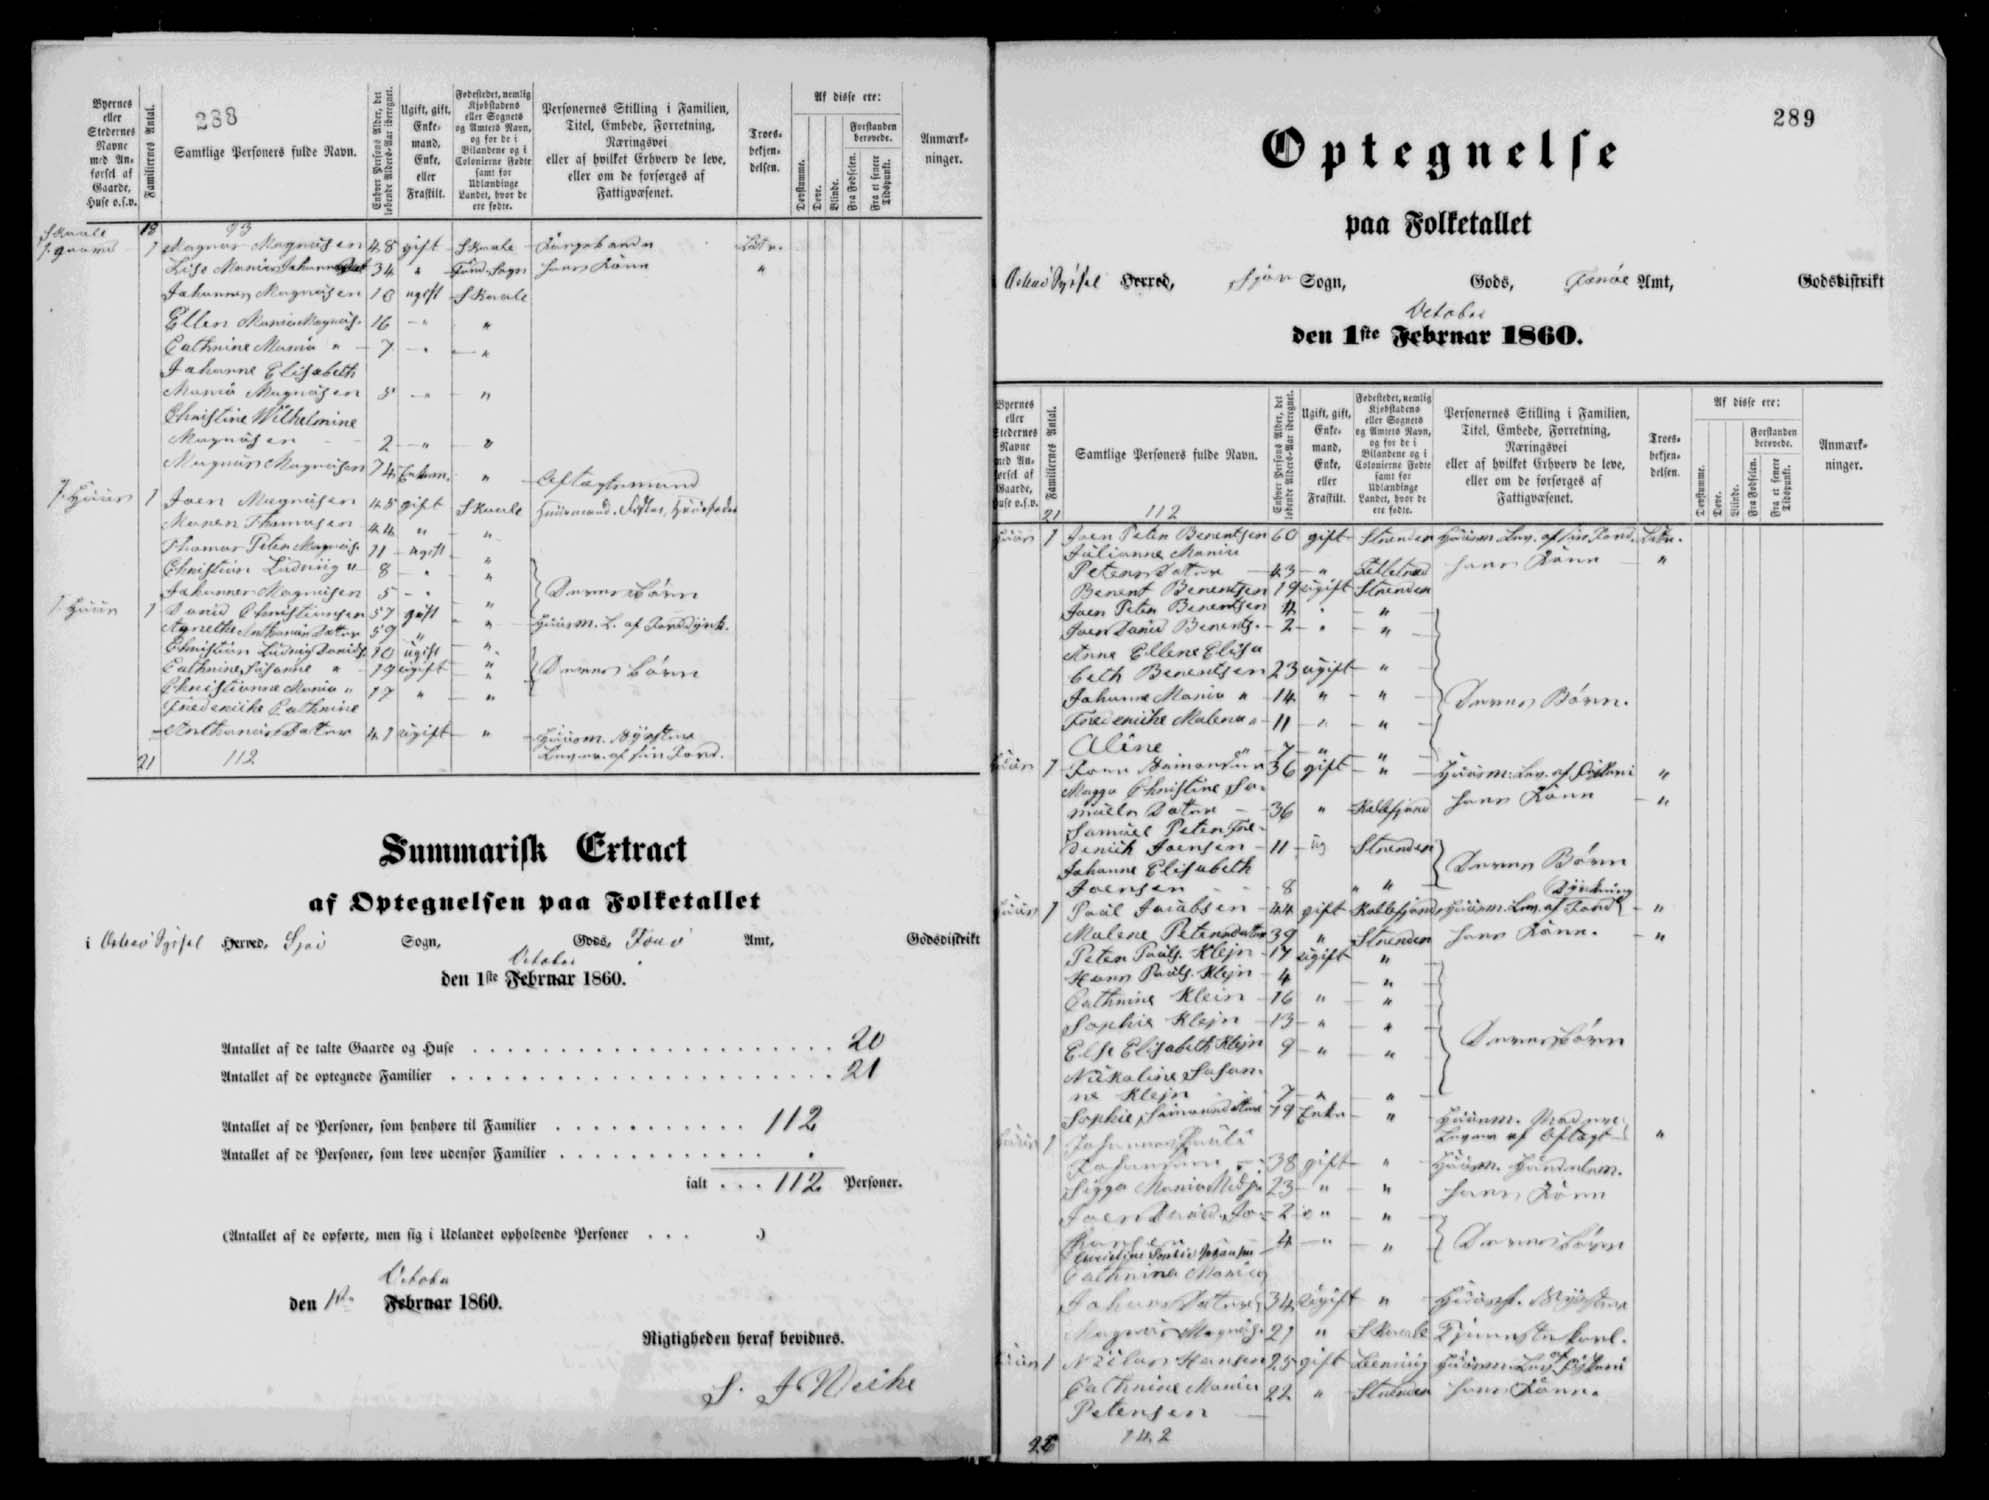 238
Byernes eller Stedernes Navne med Anførsel af Gaarde, Huse o.s.v.
Familiernes Antal.
Samtlige Personers fulde Navn.
Enhver Persons Alder, det løbende Alders-Aar iberegnet.
Ugift, gift, Enkemand, Enke, eller Fraskilt.
Fødestedet, nemlig Kjøbstadens eller Sognets og Amtets Navn, og for de i Bilandene og i Colonierne Fødte samt for Udlændinge Landet, hvor de ere fødte.
Personernes Stilling i Familien, Titel, Embede, Forretning, Næringsvei eller af hvilket Erhverv de leve, eller om de forsørges af Fattigvæsenet.
Troes-bekjendelsen.
Af disse ere:
Døvstumme.
Døve.
Blinde.
Forstanden berøvede.
Fra Fødselen.
Fra et senere Tidspunkt.
Anmærk-ninger.
Skaale 18 93
1 Magnus Magnusen 48 gift Skaale Luth.
34 " Sogn hans Kone "
Johannes Magnusen 10 ugift Skaale
Ellen Maria Magnus. 16 - " "
Cathrine Maria " - 7 - " - "
Johanne Elisabeth
Maria Magnusen 5 - " "
Christine Wilhelmine
Magnusen 2 - " "
Magnus Magnusen 74 Enkem. " Aftægtsmand
1 Huus 1 Joen Magnusen 45 gift Skaale
Maren Thomasen 44 " "
Thomas Peter Magnus. 11 ugift "
Christian Ludvig " 8 - " "
Johannes Magnusen 5 - " " } Deres Børn
1 Huus 1 David Christiansen 57 gift " Huusm. L. af Jorddyrk.
59 " "
Christian Ludvig Davids. 10 ugift "
Cathrine Susanne " 19 ugift " } Deres Børn
Christianne Maria " 17 " "
Frederikke Cathrine
41 ugift " Huusm. Syster
Lever af sin Jord.
21 112
Summarisk Extract
af Optegnelsen paa Folketallet
i Østerø Syssel Herred, Sjov Sogn, Gods, Færø Amt, Godsdistrikt
October
den 1ste Februar 1860.
Antallet af de talte Gaarde og Huse 20
Antallet af de optegnede Familier 21
Antallet af de Personer, som henhøre til Familier 112
Antallet af de Personer, som leve udenfor Familier .
ialt . . . 112 Personer.
(Antallet af de opførte, men sig i Udlandet opholdende Personer . . . .)
October
den 1ste Februar 1860.
Rigtigheden heraf bevidnes.
S. J. Weihe
289
Optegnelse
paa Folketallet
Østerø Syssel Herred, Sjov Sogn, Gods, Færøe Amt, Godsdistrikt
October
den 1ste Februar 1860.
Byernes eller Stedernes Navne med Anførsel af Gaarde, Huse o.s.v.
Familiernes Antal.
Samtlige Personers fulde Navn.
Enhver Persons Alder, det løbende Alders-Aar iberegnet.
Ugift, gift, Enkemand, Enke, eller Fraskilt.
Fødestedet, nemlig Kjøbstadens eller Sognets og Amtets Navn, og for de i Bilandene og i Colonierne Fødte samt for Udlændinge Landet, hvor de ere fødte.
Personernes Stilling i Familien, Titel, Embede, Forretning, Næringsvei eller af hvilket Erhverv de leve, eller om de forsørges af Fattigvæsenet.
Troes-bekjen-delsen.
Af disse ere:
Døvstumme.
Døve.
Blinde.
Forstanden berøvede.
Fra Fødselen.
Fra et senere Tidspunkt.
Anmærk-ninger.
21 112
Huus 1 Joen Peter Berentsen 60 gift Strenden Huusm. Lev. af sin Jord. Luth.
Julianne Maria
Peters Datter 43 - " hans Kone "
Berent Berentsen 19 ugift Strenden
Joen Peter Berentsen 4 " "
Joen David Berents. 2 " "
Anne Ellene Elisa
beth Berentsen 23 ugift "
Johanne Maria " 14 " " } Deres Børn.
Frederikke Malena " 11 " "
Aline " 7 " "
Huus 1 36 gift " Huusm. Lev. af Fiskeri "
Magga Christine Sa-
muels Datter 36 " Kollefjord hans Kone "
Samuel Peter Fre-
derik Joensen 11 ug Strenden
Johanne Elisabeth } Deres Børn
Joensen 8 " "
Huus 1 Poul Jacobsen 44 gift Kollefjord Huusm. Lev. af Jord Dyrkning "
Malene Petersdatter 39 " Strenden hans Kone. "
Peter Pouls. Klejn 17 ugift "
Hans Pouls. Klejn 4 "
Cathrine Klein 16 " "
Sophie Klejn 13 " "
Else Elisabeth Klejn 9 " " } Deres Børn
Nikoline Susan-
ne Klejn 7 " "
Sophie Simonsdatter 79 Enke "
Lever af Aftægt "
Huus 1
38 gift "
Sigga Maria 23 " " hans Kone
Joen David Jo- 2 " "
hansen 4 " " } Deres Børn
Cathrine Maria
34 ugift "
Magnus Magnus. 21 " Skaale Tjenestekarl.
Huus 1 Niclas Hansen 25 gift Huusm. Lev. af Fiskeri
Cathrine Maria 22 " Strenden hans Kone.
Petersen
142